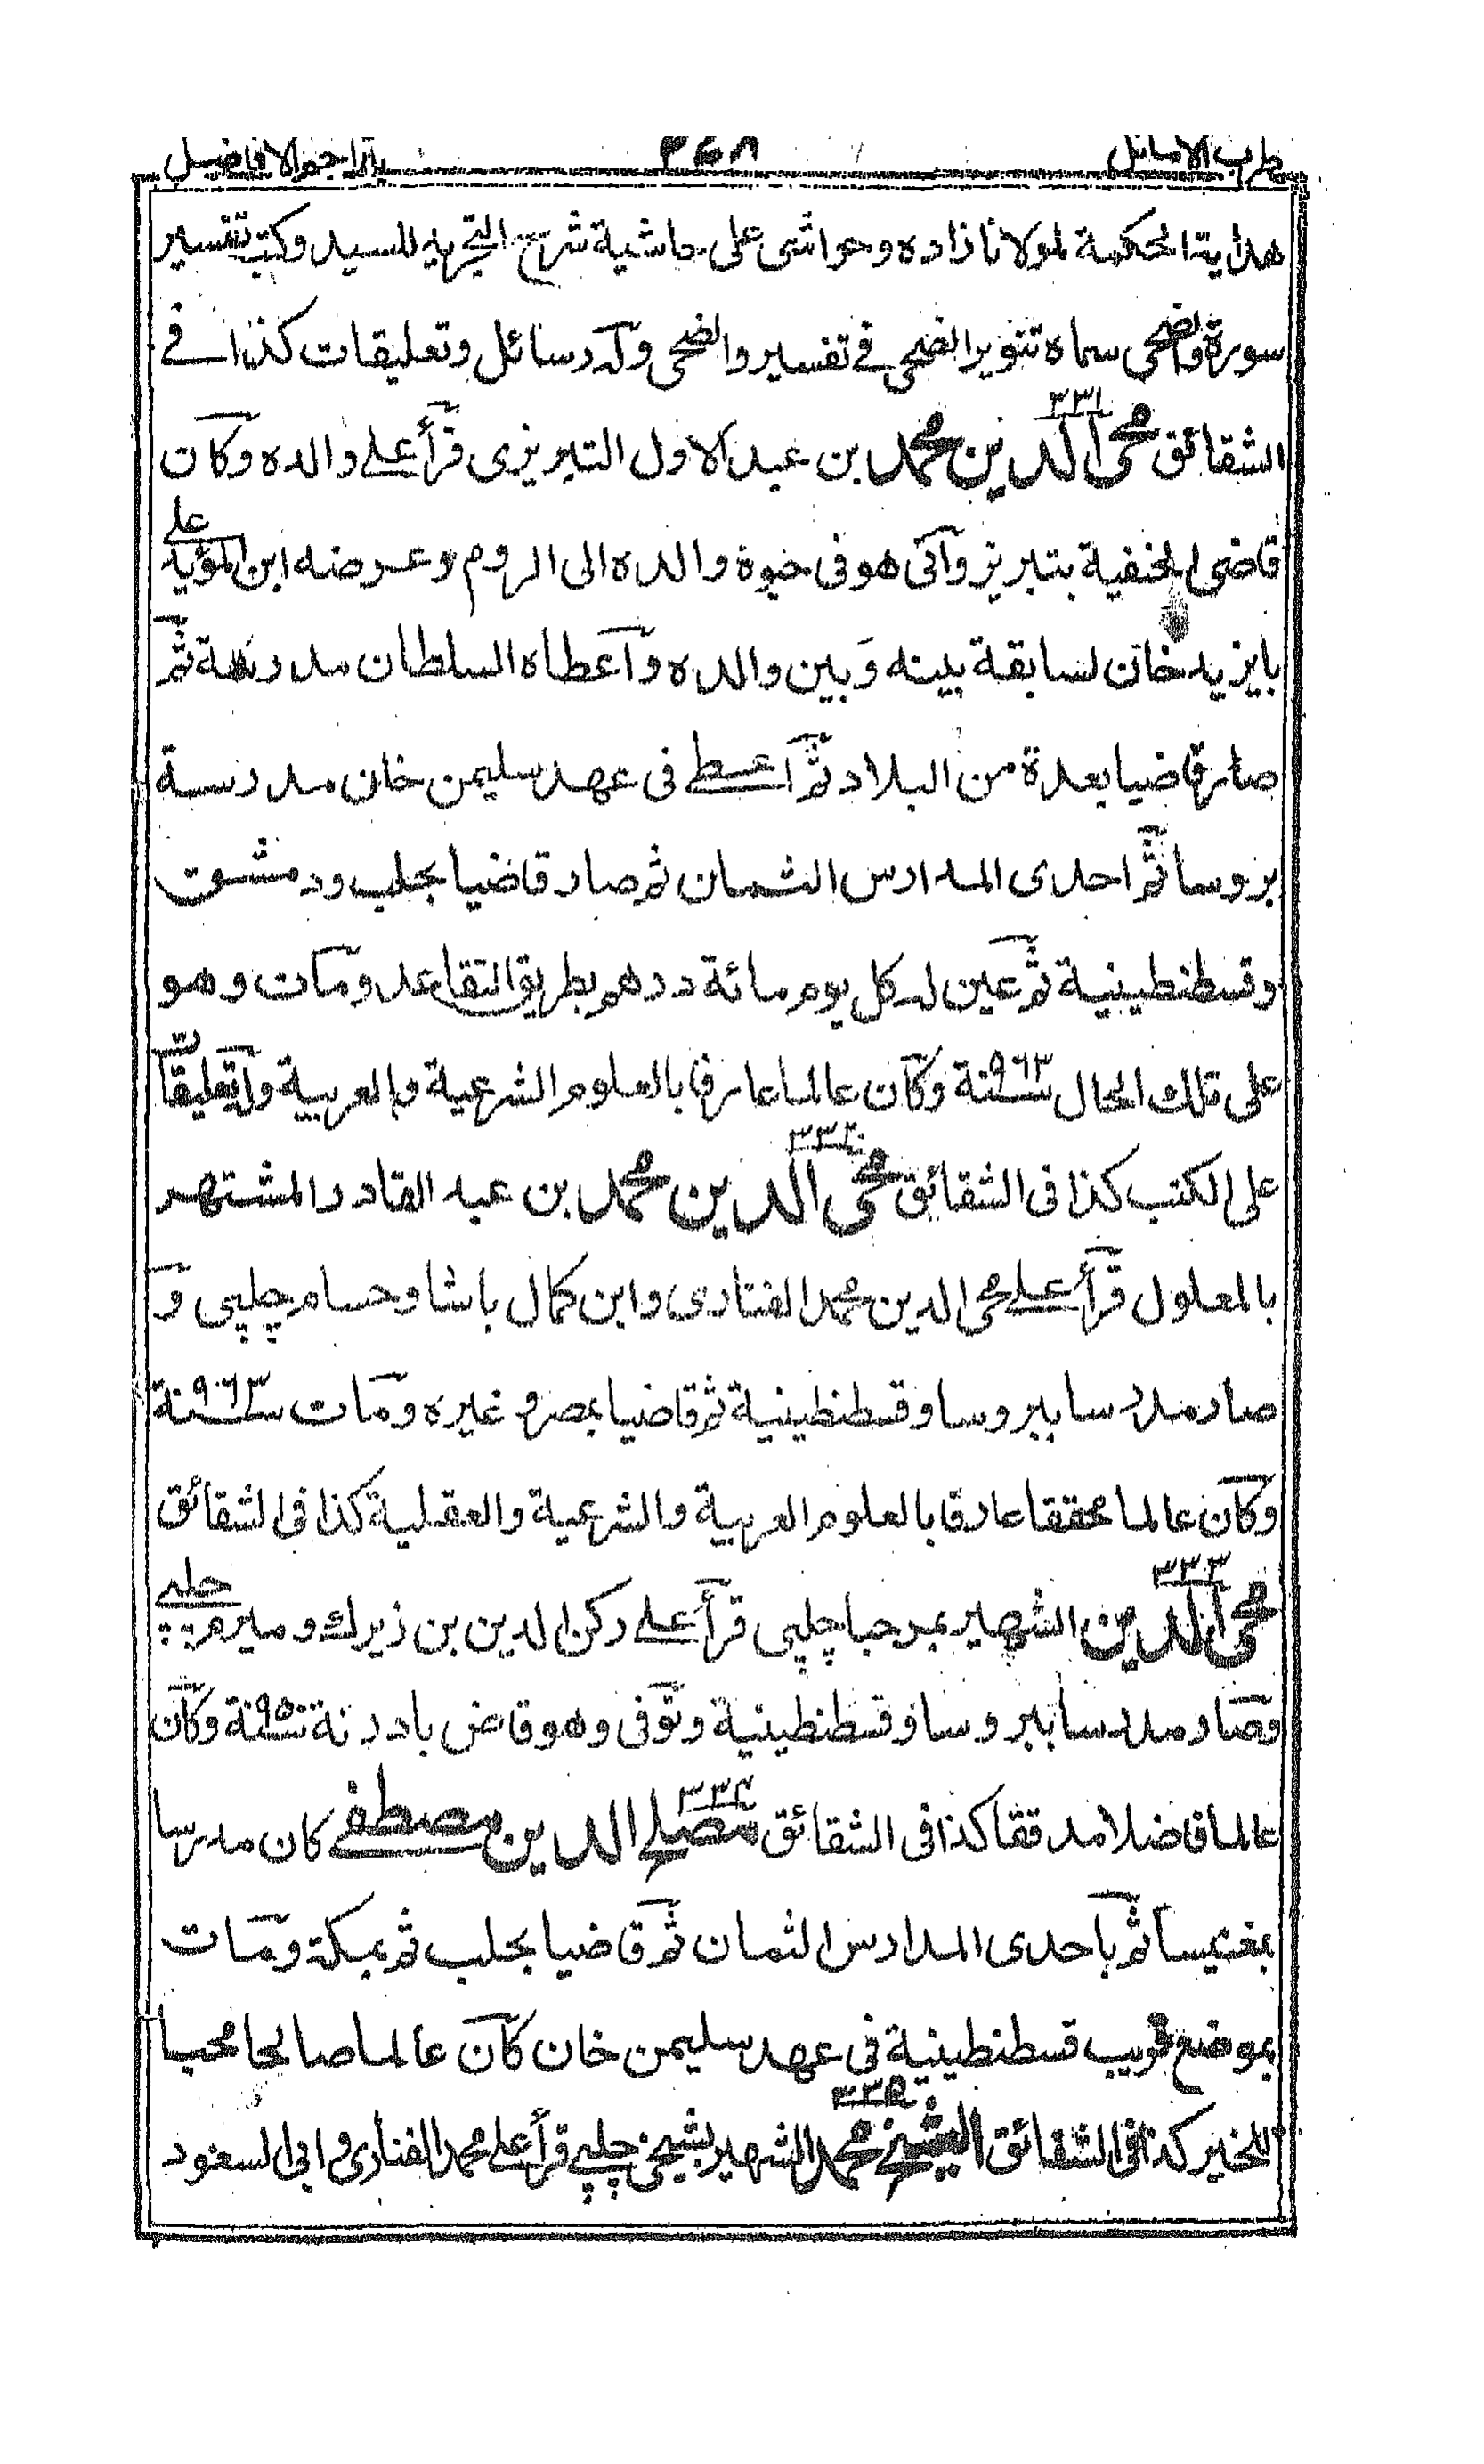 طرب الاماثل ٢٦٨ بتراجم الافاضل
هداية الحكمة لمولانا زاده وحواشى على حاشية شرح التجريد للسيد وكتب تفسير
سورة والضحى سماه تنوير الضحى فى تفسير والضحى وله رسائل وتعليقات كذا فى
٣٣١
الشقائق محى الدين محمد بن عبد الاول التبريزى قرأ على والده وكان
قاضى الحنفية بتبريز وآتى هو فى حيوة والده الى الروم وعرضه ابن المؤيد على
بايزيد خان لسابقة بينه وبين والده واعطاه السلطان مدرسة ثم
صار قاضيا بعدة من البلاد ثم اعطى فى عهد سليمن خان مدرسة
بروسا ثم احدى المدارس الثمان ثم صار قاضيا بحلب ودمشق
وقسطنطينية ثم عين له كل يوم مائة درهم بطريق التقاعد ومات وهو
على تلك الحال سنة ٩٦٣ وكان عالما عارفا بالعلوم الشرعية والعربية وله تعليقات
٣٣٢
على الكتب كذا فى الشقائق محى الدين محمد بن عبد القادر المشتهر
بالمعلول قرأ على محى الدين محمد الفنارى وابن كمال باشا وحسام چلپى و
صار مدرسا ببروسا وقسطنطينية ثم قاضيا بمصر وغيره ومات سنة ٩٦٣
وكان عالما محققا عارفا بالعلوم العربية والشرعية والعقلية كذا فى الشقائق
٣٣٣
محى الدين الشهير بمرحبا چلپى قرأ على ركن الدين بن زيرك وميرم چلپى
وصار مدرسا ببروسا وقسطنطينية وتوفى وهو قاض بادرنة سنة ٩٥٠ وكان
٣٣٤
عالما فاضلا مدققا كذا فى الشقائق مصلح الدين مصطفى كان مدرسا
بمغنيسا ثم باحدى المدارس الثمان ثم قاضيا بحلب ثم بمكة ومات
بموضع قريب قسطنطينية فى عهد سليمن خان كان عالما صالحا محبا
٣٣٥
للخير كذا فى الشقائق الشيخ محمد الشهير بشيخى چلپى قرأ على محمد الفنارى وابى السعود